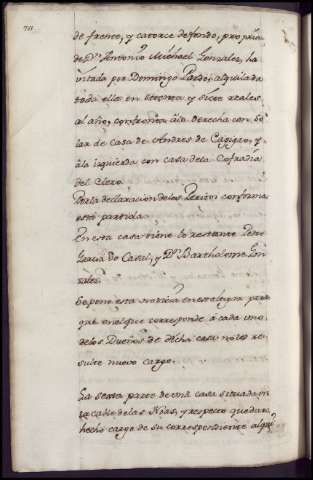 de frente, y catorce de fondo, propria
de Dn. Antonio Michael Gonzales, ha
vitada por Domingo Pardo, alquilada
toda ella en Setenta y siete reales
al año, confronta à la derecha con So
lar de casa de Andres de Cagigao, y
à la izquierda con casa dela Cofradia
del Clero.
Por la declaracion de los Peritos conforma
esta partida.
En esta casa tiene la restante Pedro
Garcia do Casal, y Dn. Bartholome Gon
zalez.
Se pone esta noticia en esta lexra para
que en el que corresponde à cada uno
de los Dueños de dicha casa no les re
sulte nuevo cargo.
La Sexta parte de una casa situada en
la calle de las y respecto queda
hecho cargo de su correspondiente alqui